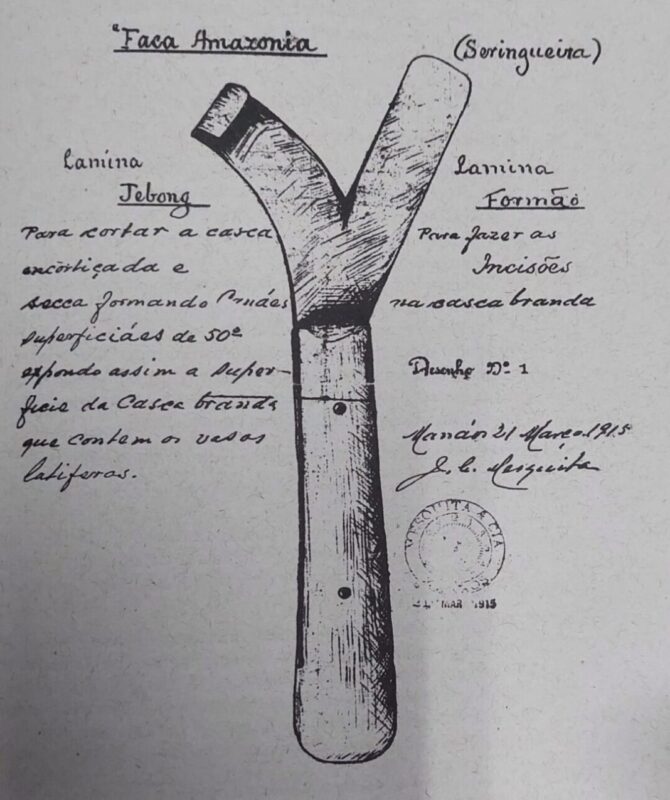 "Faca Amazonia
(Seringueira)
Lamina
Jebong
Para cortar a casca
encortiçada e
secca formando Canáes
superficiáes de 50º
expondo assim a super-
ficie da Casca branda
que contem os vasos
latiferos.
Lamina
Formão
Para fazer as
Incisões
na casca branda
Desenho Nº 1
Manáos 21 Março 1915
J. C. Mesquita
MESQUITA & CIA
MAR 1915